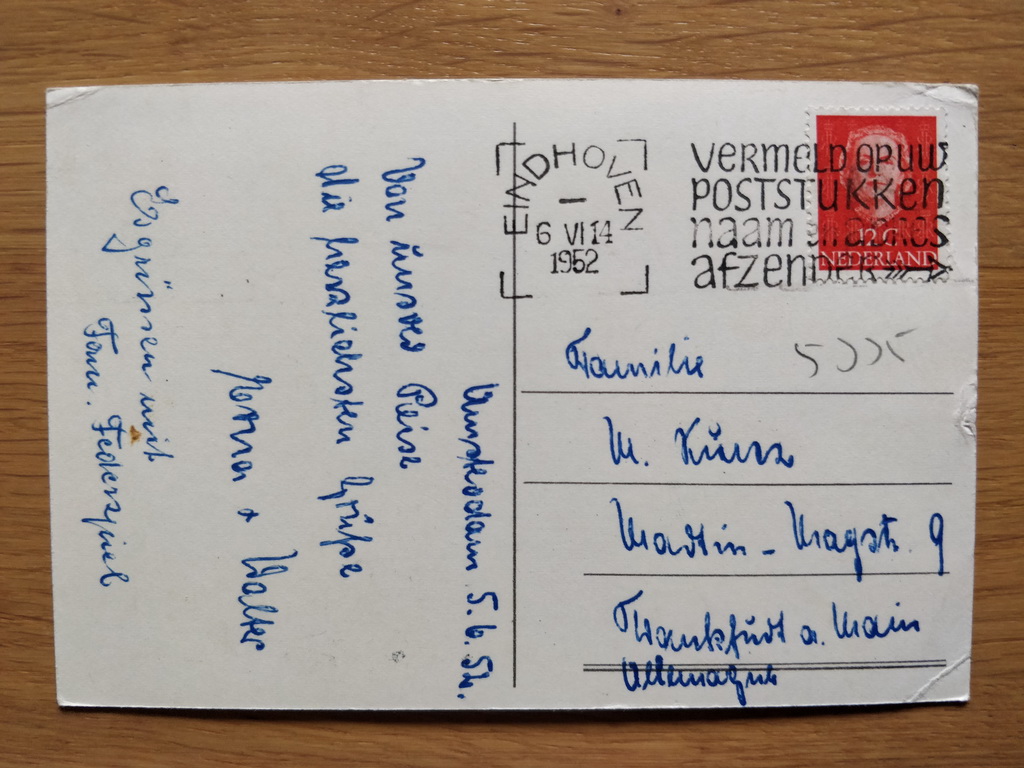 Amsterdam 5.6.52.
Von unsrer Reise
die herzlichsten Grüße
Erna + Walter
Es grüssen mit
Fam. Federspiel
EINDHOVEN
6 VI 14
1952
VERMELD OP UW
POSTSTUKKEN
naam en adres
afzender
12 C
NEDERLAND
Familie
M. Kunz
Martin - Magstr. 9
Frankfurt a. Main
Allemagne